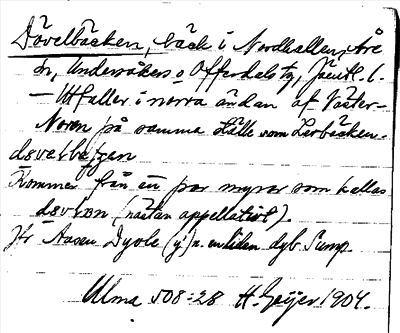 Dövelbäcken, bäck i Nordhallen, Åre
sn, Undersåkers o Offerdals tg, Jämtl. l.
— Utfaller i norra ändan af Väster-
Noren på samma ställe som Lerbäcken.
Kommer från en par myrar som kallas
(nästan appellativt).
Jfr Aasen Dyvle (y') n. en liden dyb Sump.
Ulma 508:28 H. Geijer 1904.